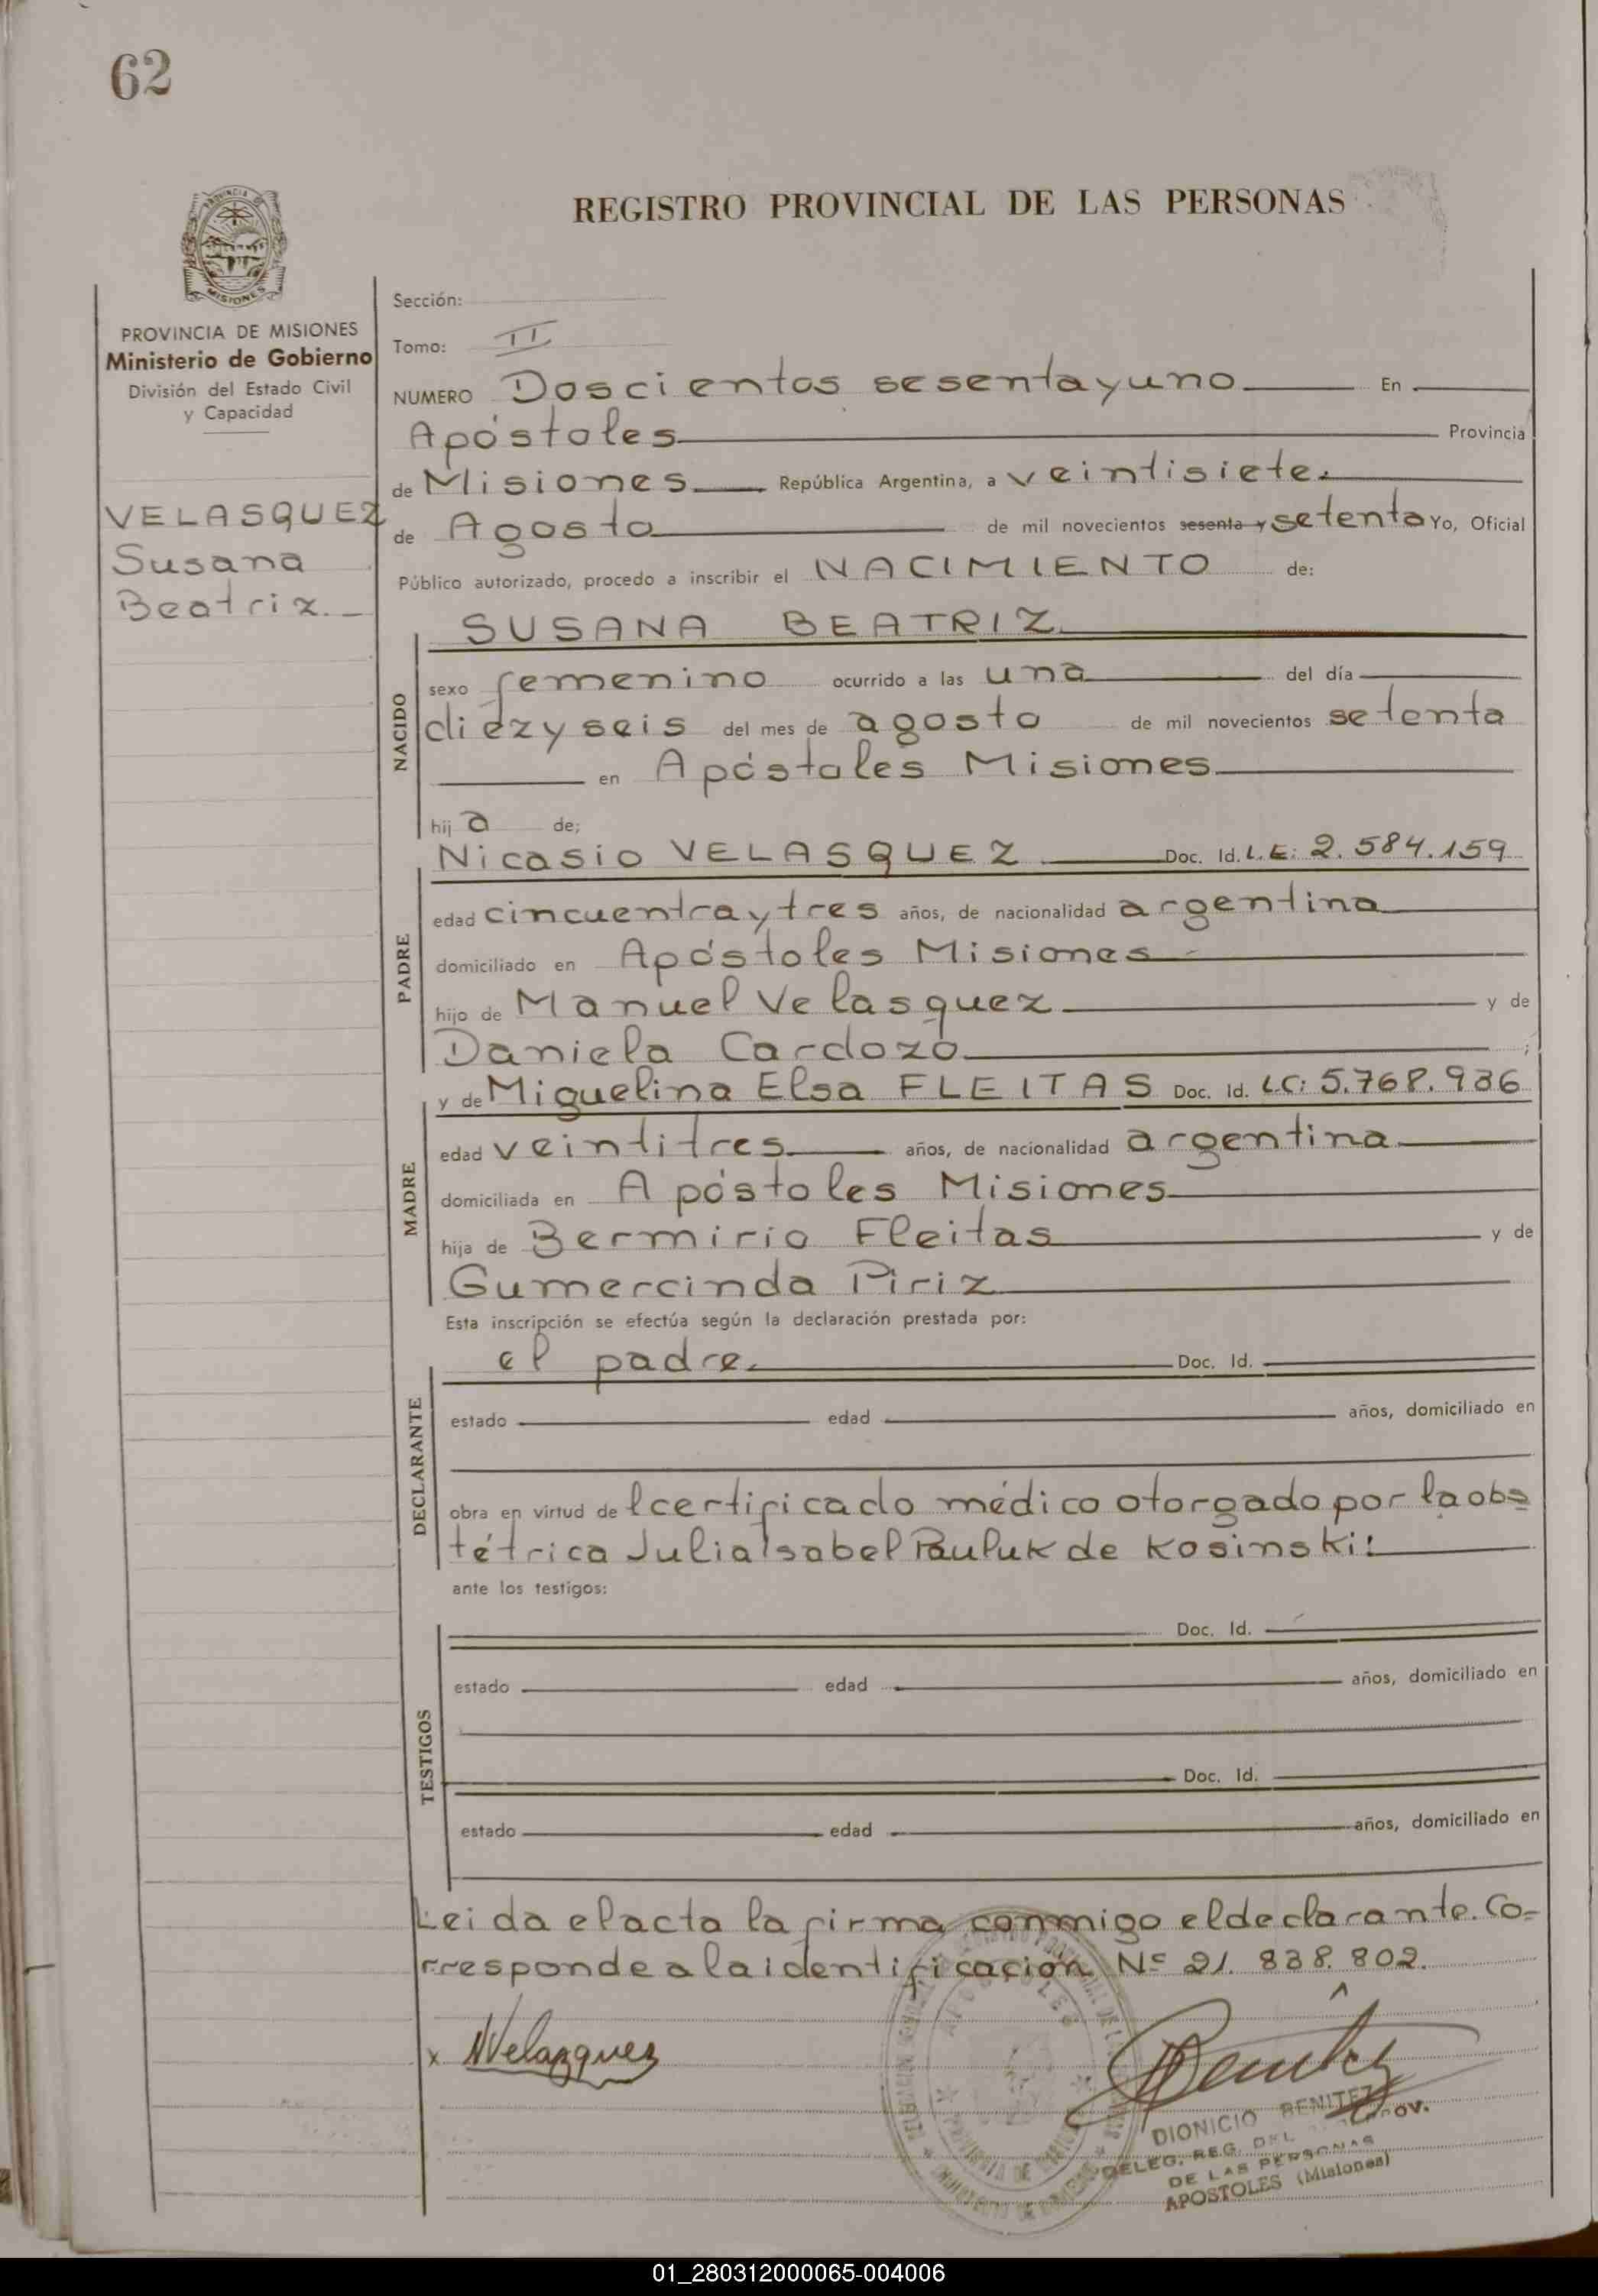 62
REGISTRO PROVINCIAL DE LAS PERSONAS
MISIONES
PROVINCIA DE MISIONES
Ministerio de Gobierno
División del Estado Civil
y Capacidad
VELASQUEZ
Susana
Beatriz.
Sección:
Tomo: II
NUMERO Doscientos sesentayuno En
Apóstoles Provincia
de Misiones República Argentina, a veintisiete.
de Agosto de mil novecientos sesenta y setenta Yo, Oficial
Público autorizado, procedo a inscribir el NACIMIENTO de:
SUSANA BEATRIZ
NACIDO
sexo femenino ocurrido a las una del día
diezyseis del mes de agosto de mil novecientos setenta
en Apóstoles Misiones
hij a de;
PADRE
Nicasio VELASQUEZ Doc. Id. L.E: 2.584.159
edad cincuentraytres años, de nacionalidad argentina
domiciliado en Apóstoles Misiones
hijo de Manuel Velasquez y de
Daniela Cardozo ;
MADRE
y de Miguelina Elsa FLEITAS Doc. Id. LC: 5.768.936
edad veintitres años, de nacionalidad argentina
domiciliada en Apóstoles Misiones
hija de Bermirio Fleitas y de
Gumercinda Piriz
Esta inscripción se efectúa según la declaración prestada por:
DECLARANTE
el padre. Doc. Id.
estado edad años, domiciliado en
obra en virtud de l certificado médico otorgado por la obs
tétrica Julia Isabel Pauluk de Kosinski:
ante los testigos:
TESTIGOS
Doc. Id.
estado edad años, domiciliado en
Doc. Id.
estado edad años, domiciliado en
Leida el acta la firma conmigo el declarante. Co-
rresponde a la identificación Nº 21.838.802.
x NVelazquez
Benitez
DIONICIO BENITEZ
DELEG. REG. DEL PROV.
DE LAS PERSONAS
APOSTOLES (Misiones)
01_280312000065-004006